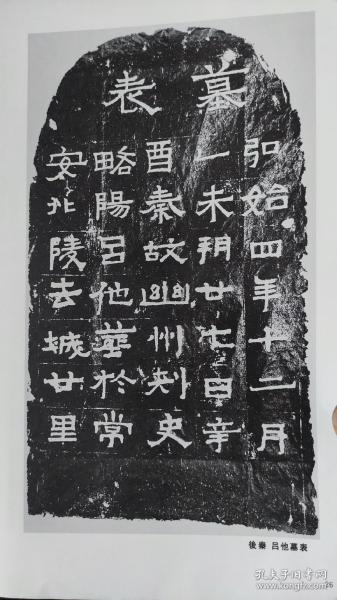 墓表
弘始四年十二月
乙未朔廿七日辛
酉秦故幽州刺史
略陽呂他葬於常
安北陵去城廿里
後秦 呂他墓表
26
孔夫子旧书网